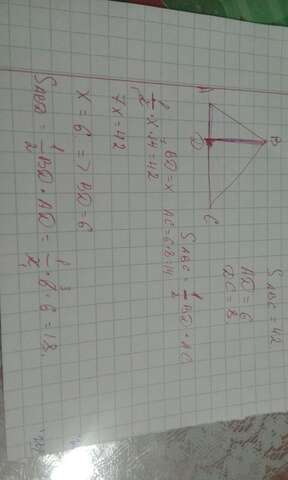 B
A D C
S ABC = 42
AD = 6
DC = 8.
S ABC = 1/2 BD · AC
BD = x AC = 6+8=14
1/2 · x · 14 = 42
7x = 42
x = 6 => BD = 6
S ABD = 1/2 BD · AD = 1/2 · 6 · 6 = 18.